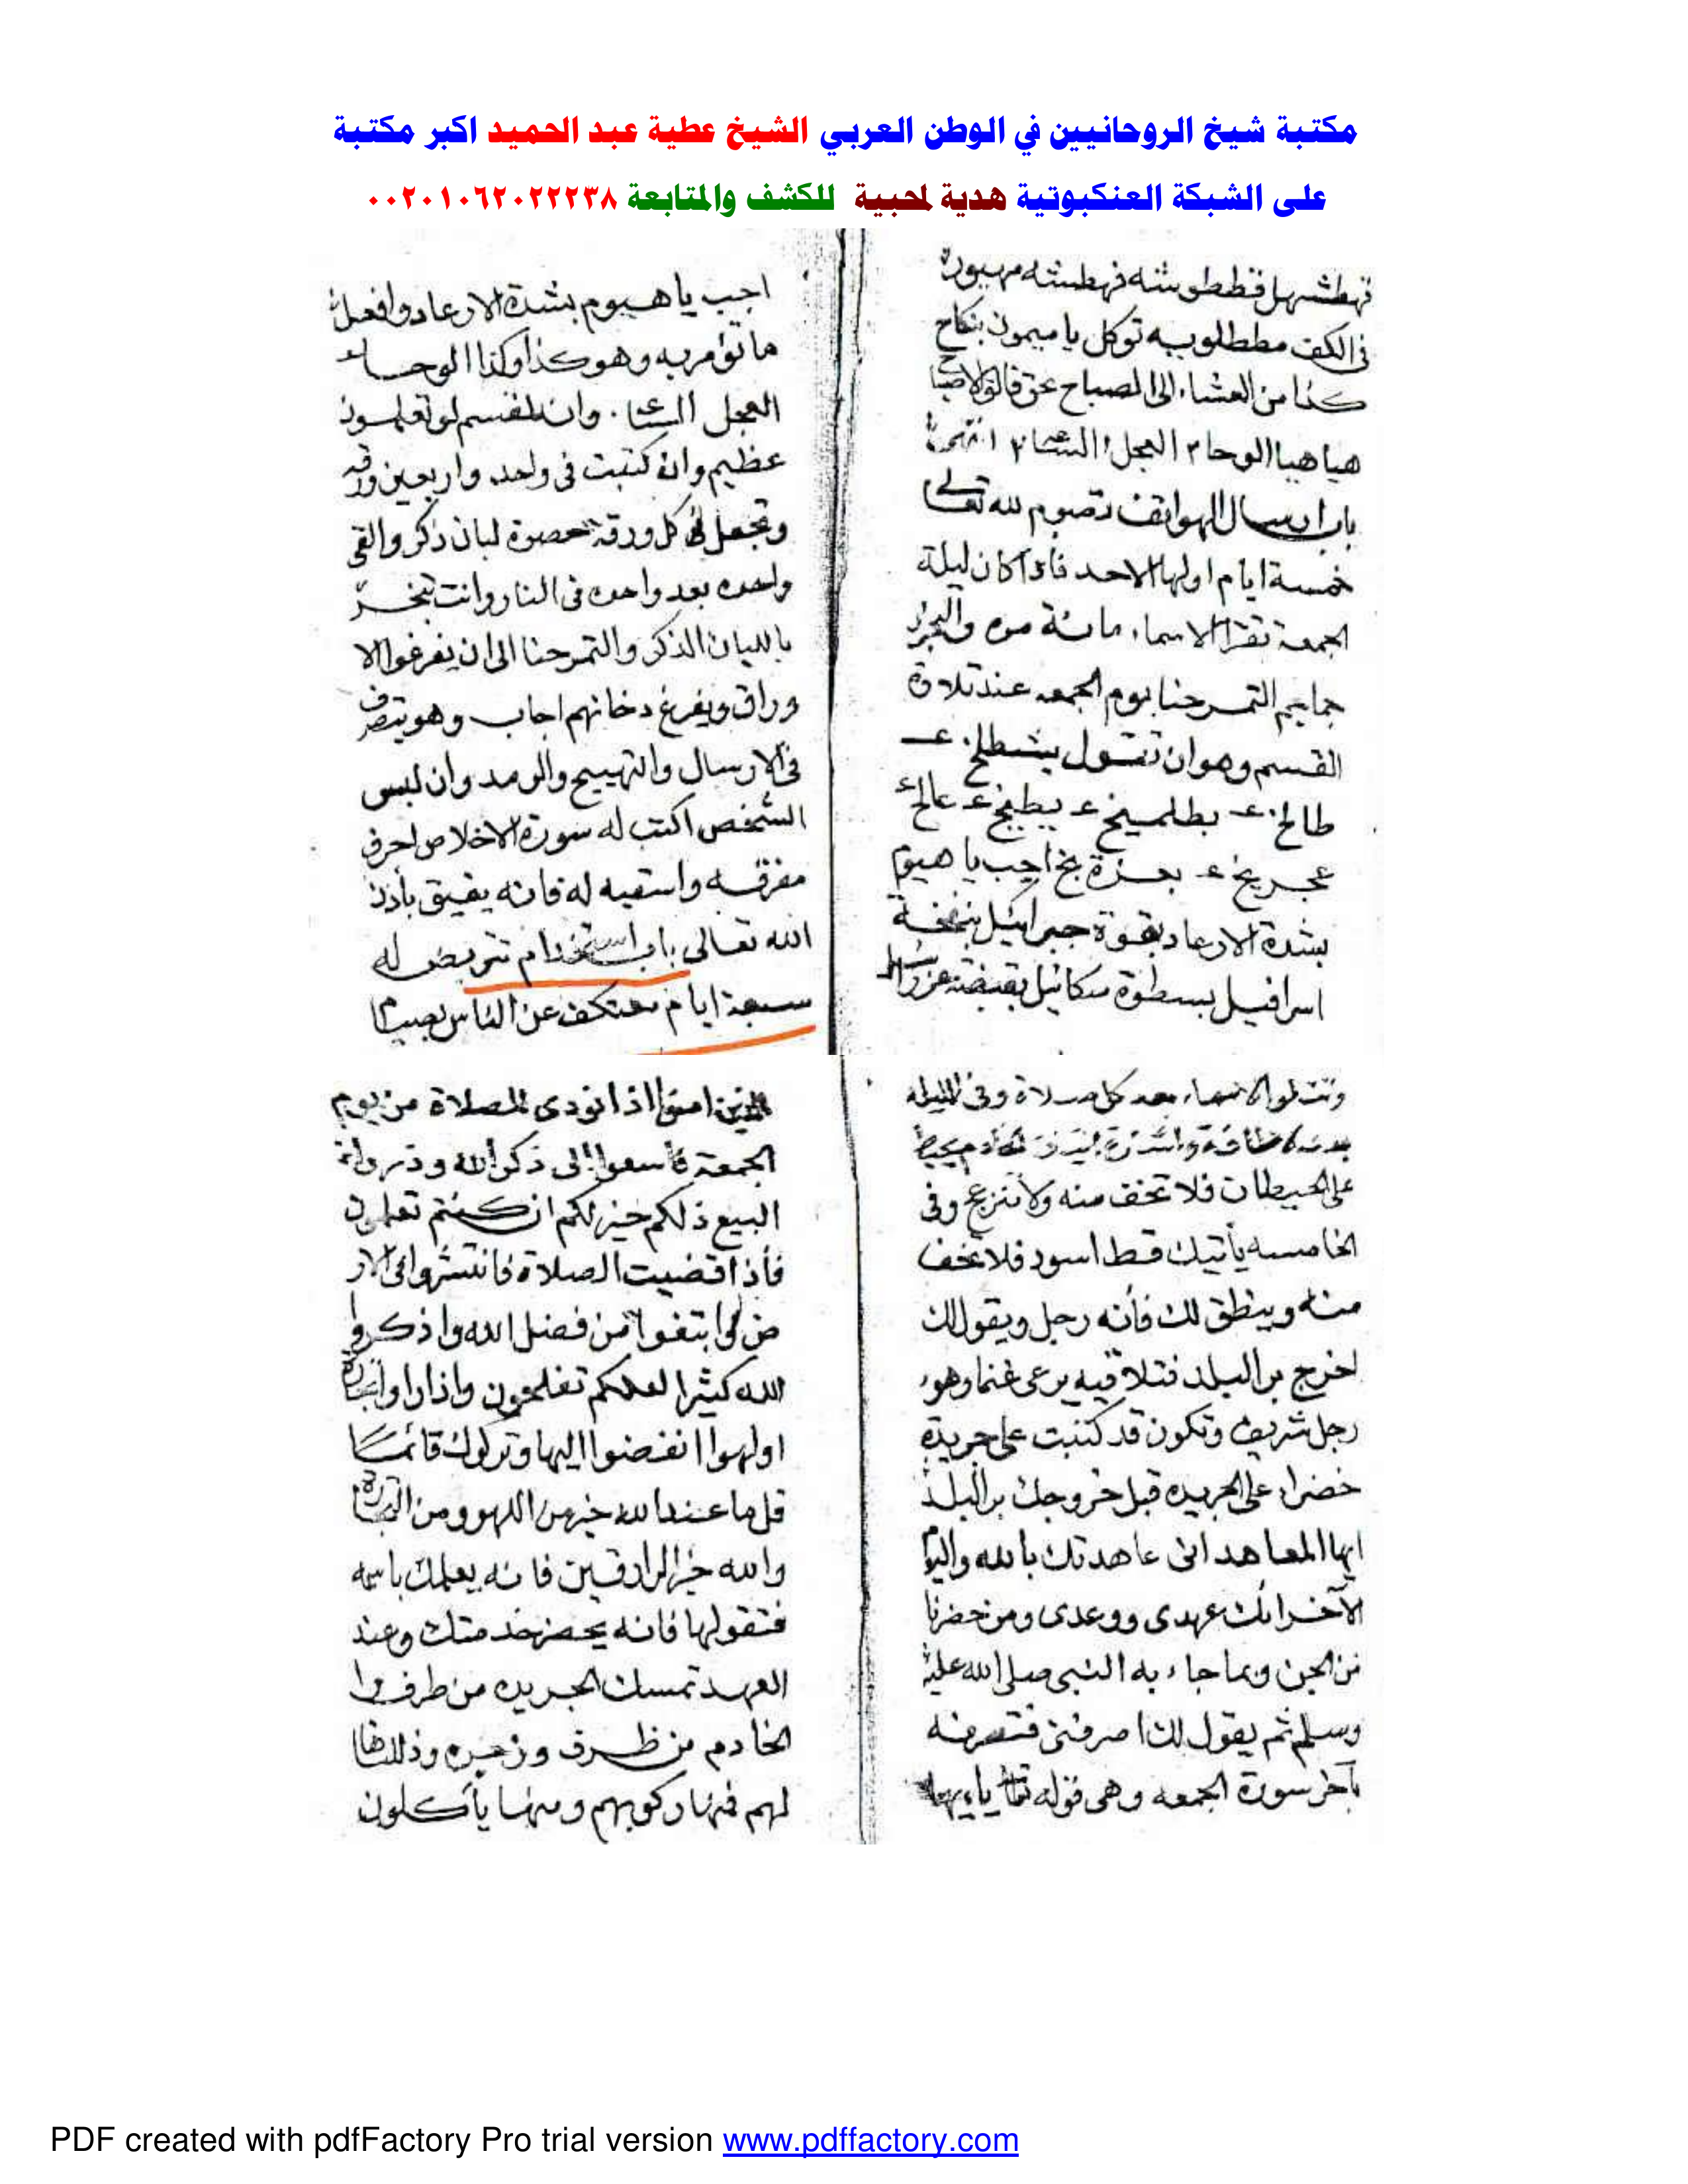 مكتبة شيخ الروحانيين في الوطن العربي الشيخ عطية عبد الحميد اكبر مكتبة
على الشبكة العنكبوتية هدية لمحبية للكشف والمتابعة ٠٠٢٠١٠٦٢٠٢٢٢٣٨
فى الكف توكل يا ميمون بنكاح
كذا من العشاء الى الصباح بحق فالق الاصبا
هيا هيا الوحا ٢ العجل ٢
باب ارسال الهواتف تصوم لله تعالى
خمسة ايام اولها الاحد فاذا كان ليلة
الجمعة تقرا الاسماء مائة مره والبخور
جماجم التمرحنا يوم الجمعه عند تلاوة
القسم وهو ان تقول
اجب يا هيوم
بشدة الارعاد بقوة جبرائيل بنفخة
اسرافيل بسطوة ميكائيل بقبضة عزرائيل
اجب يا هيوم بشدة الارعاد وافعل
ما تؤمر به وهو كذا وكذا الوحا
العجل وانه لقسم لو تعلمون
عظيم وان كتبت فى واحد واربعين ورقه
وتجعل فى كل ورقة حصوة لبان ذكر والقى
واحده بعد واحده فى النار وانت تبخر
باللبان الذكر والتمرحنا الى ان يفرغوا الا
وراق ويفرغ دخانهم اجاب وهو يتصرف
فى الارسال والتهييج والرمد وان لبس
الشخص اكتب له سورة الاخلاص احرف
مفرقه واسقيه له فانه يفيق بأذن
الله تعالى باب استخدام تتريض له
سبعة ايام معتكف عن الناس بصيام
وتتلوا الاسماء بعد كل صلاة وفى الليله
على الحيطان فلا تخف منه ولا تنزعج وفى
الخامسه يأتيك قط اسود فلا تخف
منه وينطق لك فأنه رجل ويقول لك
اخرج بر البلد فتلاقيه يرعى غنما وهو
رجل شريف وتكون قد كتبت على جريدة
خضراء على الجريده قبل خروجك بر البلد
ايها المعاهد انى عاهدتك بالله واليوم
الآخر انك عهدى ووعدى ومن حضرنا
من الجن وبما جاء به النبى صلى الله عليه
وسلم ثم يقول لك اصرفنى فتصرفه
بآخر سورة الجمعه وهى قوله تعالى يايها
الذين امنوا اذا نودى للصلاة من يوم
الجمعة فأسعوا الى ذكر الله وذروا
البيع ذلكم خير لكم ان كنتم تعلمون
فأذا قضيت الصلاة فانتشروا فى الار
ض وابتغوا من فضل الله واذكروا
الله كثيرا لعلكم تفلحون واذا راوا تجارة
او لهوا انفضوا اليها وتركوك قائما
قل ما عند الله خير من اللهو ومن التجارة
والله خير الرازقين فانه يعلمك باسمه
فتقولها فانه يحضر خدمتك وعند
العهد تمسك الجريده من طرف وا
الخادم من طرف وذللناها
لهم فمنها ركوبهم ومنها يأكلون
PDF created with pdfFactory Pro trial version www.pdffactory.com